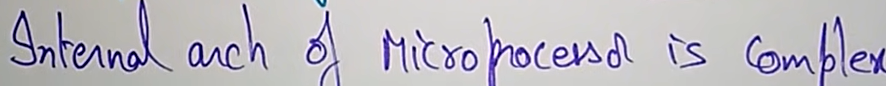 Internal arch of Microprocessor is Complex